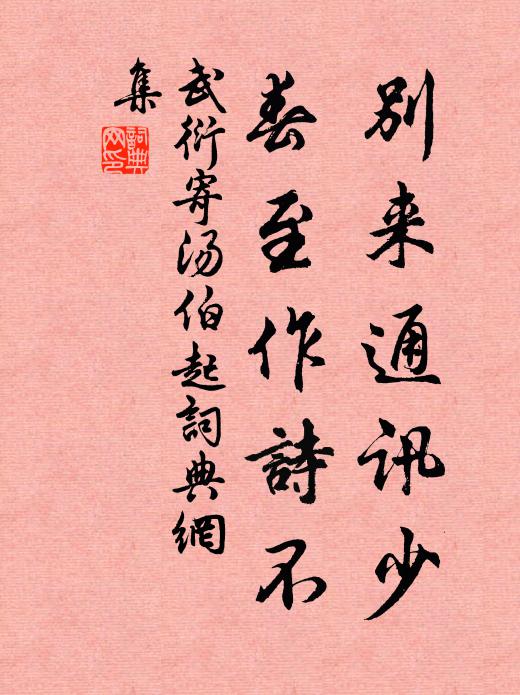 别来通訊少
春至作詩不
武衍寄汤伯起詞典網
集
詞典網印